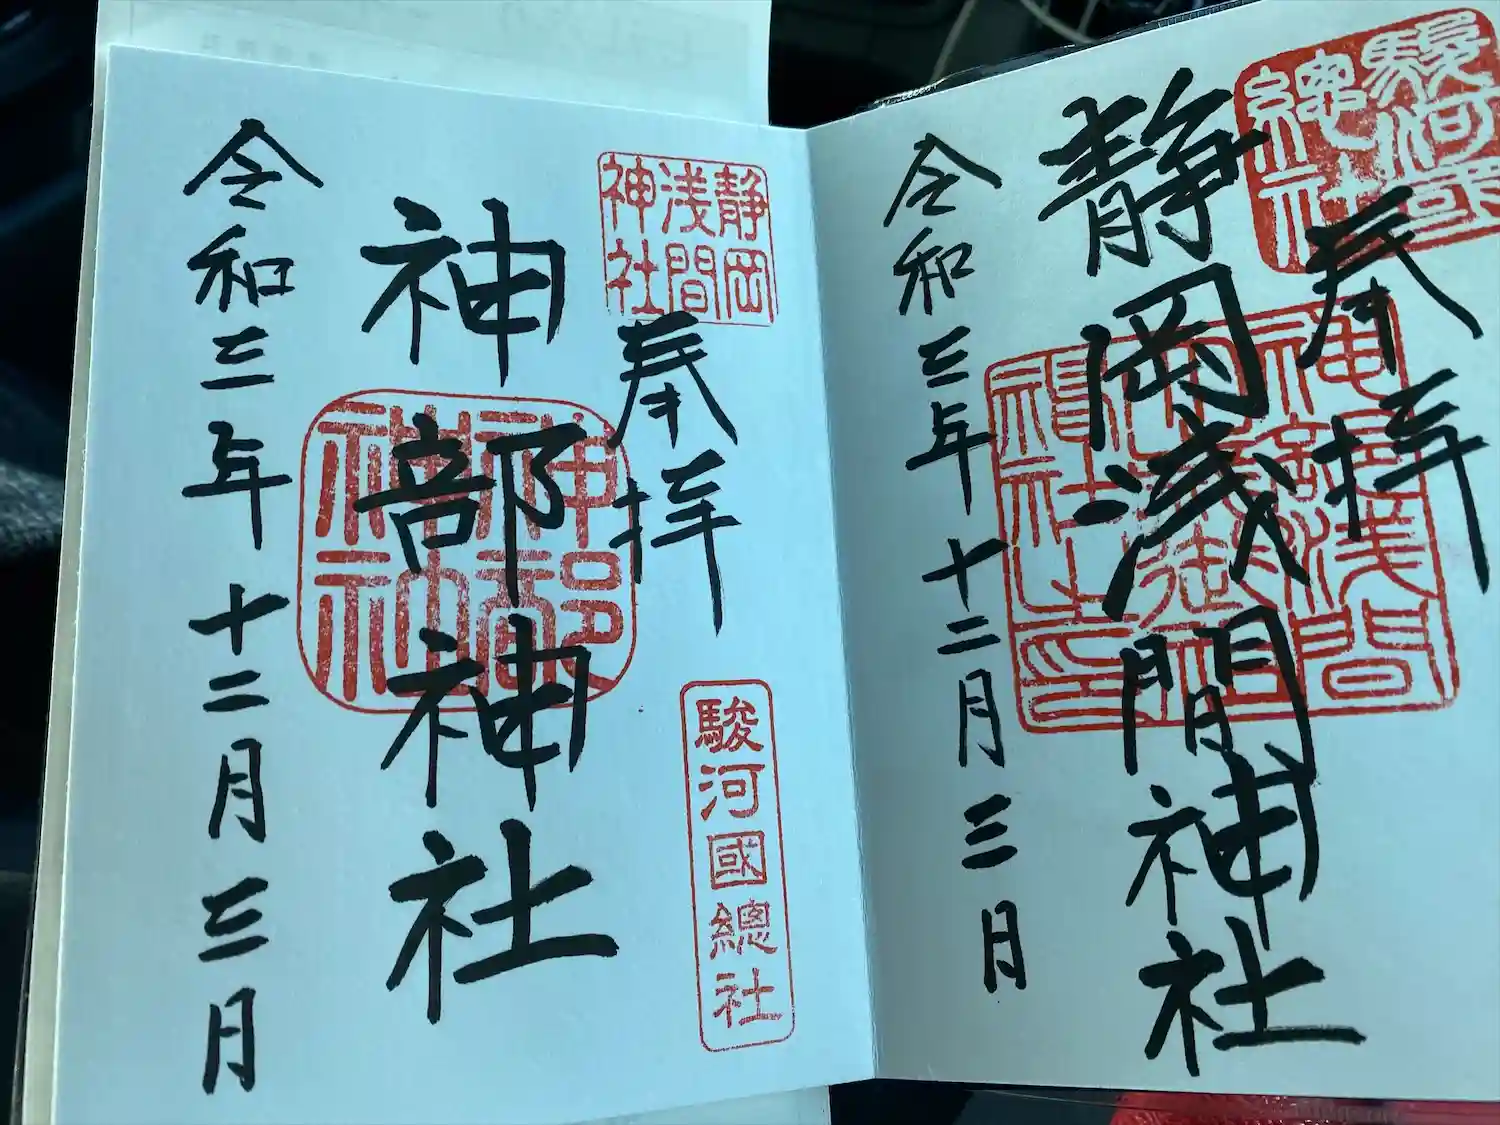 駿河國
總社
奉拝
静岡浅間神社
神部浅間
令和三年十二月三日
静岡
浅間
神社
奉拝
駿河國總社
神部神社
令和三年十二月三日